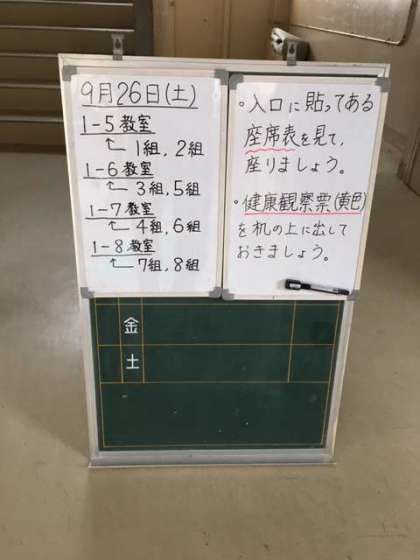 9月26日(土)
1-5教室
1組,2組
1-6教室
3組,5組
1-7教室
4組,6組
1-8教室
7組,8組
。入口に貼ってある
座席表を見て,
座りましょう。
。健康観察票(黄色)
を机の上に出して
おきましょう。
金
土